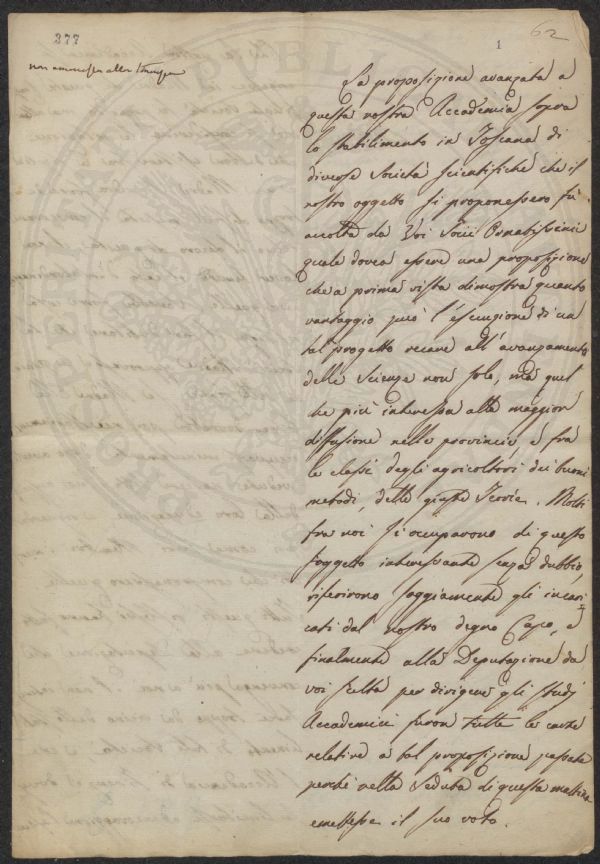 377
1
62
non ammessa alla Stampa
La proposizione avanzata a
questa nostra Accademia sopra
lo stabilimento in Toscana di
diverse Società scientifiche che il
nostro oggetto si proponessero fù
accolta da Voi Socii Ornatissimi
quale dovea essere una proposizione
che a prima vista dimostra quanto
vantaggio può l'esecuzione di un
tal progetto recare all'avanzamento
delle Scienze non solo, ma quel
che più interessa alla maggior
diffusione nelle provincie, e fra
le classi degli agricoltori dei buoni
metodi, delle giuste Teorie. Molti
fra noi si occuparono di questo
soggetto interessante senza dubbio,
riferirono saggiamente gli incari-
cati dal nostro degno Capo, e
finalmente alla Deputazione da
voi scelta per dirigere gli studj
Accademici furon tutte le carte
relative a tal proposizione passate
perché nella Seduta di questa mattina
emettesse il suo voto.